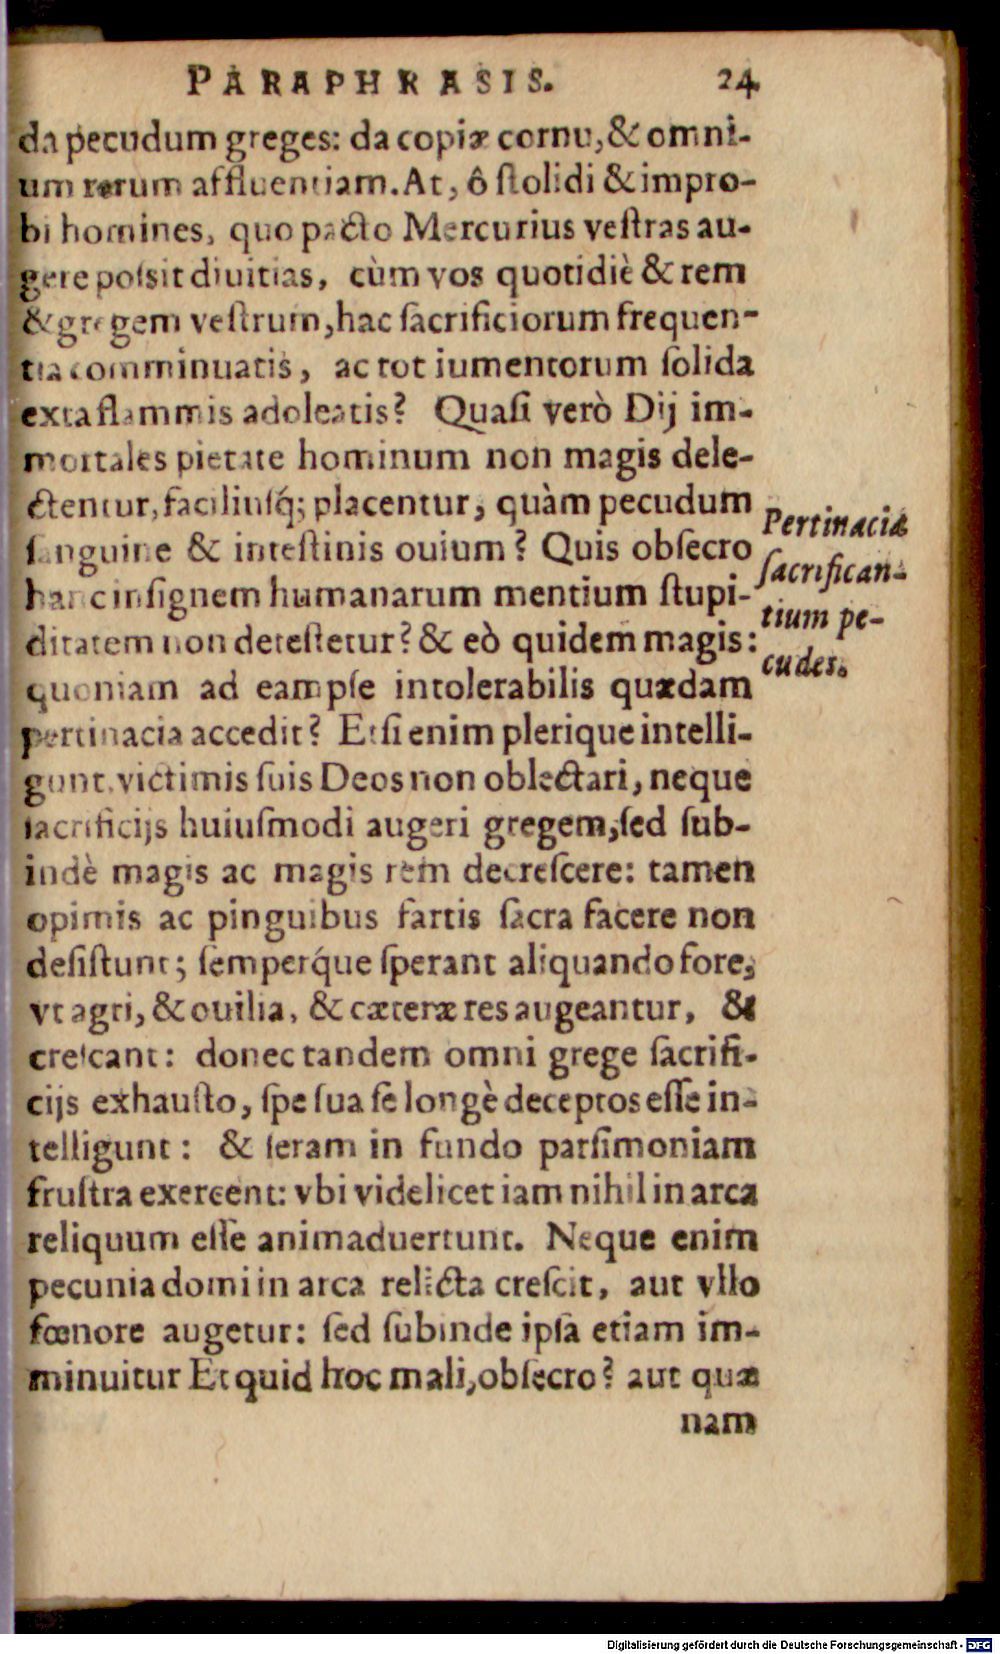 PARAPHRASIS. 24
da pecudum greges: da copiæ cornu, & omni-
um rerum affluentiam. At, ô ſtolidi & impro-
bi homines, quo pacto Mercurius veſtras au-
gere poſsit diuitias, cùm vos quotidiè & rem
& gregem veſtrum, hac ſacrificiorum frequen-
tia comminuatis, ac tot iumentorum ſolida
exta flammis adoleatis? Quaſi verò Dij im-
mortales pietate hominum non magis dele-
ctentur, faciliuſq́; placentur, quàm pecudum
ſanguine & inteſtinis ouium? Quis obſecro
hanc inſignem humanarum mentium ſtupi-
ditatem non deteſtetur? & eò quidem magis:
quoniam ad eampſe intolerabilis quædam
pertinacia accedit? Etſi enim plerique intelli-
gunt, victimis ſuis Deos non oblectari, neque
ſacrificijs huiuſmodi augeri gregem, ſed ſub-
indè magis ac magis rem decreſcere: tamen
opimis ac pinguibus fartis ſacra facere non
deſiſtunt; ſemperq́ue ſperant aliquando fore,
vt agri, & ouilia, & cæteræ res augeantur, &
creſcant: donec tandem omni grege ſacrifi-
cijs exhauſto, ſpe ſua ſe longè deceptos eſſe in-
telligunt: & ſeram in fundo parſimoniam
fruſtra exercent: vbi videlicet iam nihil in arca
reliquum eſſe animaduertunt. Neque enim
pecunia domi in arca relicta creſcit, aut vllo
fœnore augetur: ſed ſubinde ipſa etiam im-
minuitur Et quid hoc mali, obſecro? aut quæ
nam
Pertinacia
ſacrifican-
tium pe-
cudes.
Digitalisierung gefördert durch die Deutsche Forschungsgemeinschaft - DFG